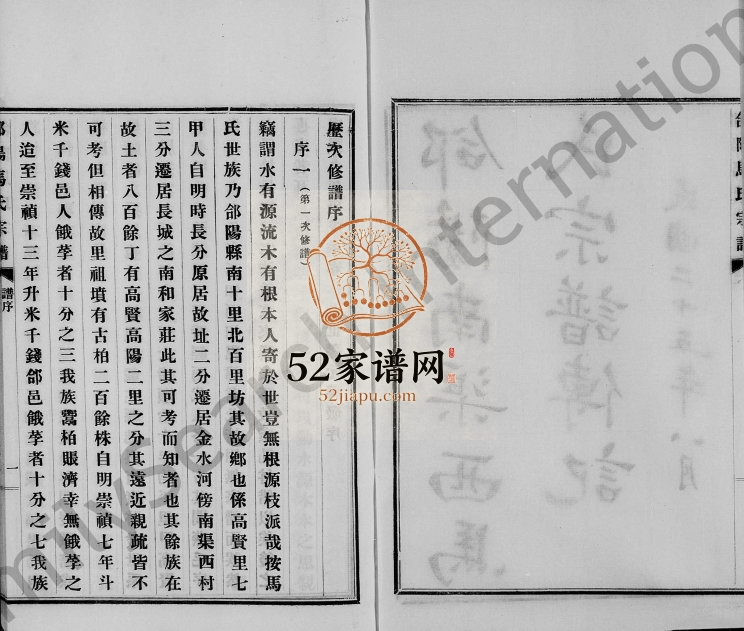 郃陽馬氏宗譜
民國二十五年八月
氏宗譜傳記
郃陽南渠西馬
歷次修譜序
序一(第一次修譜)
竊謂水有源流木有根本人寄於世豈無根源枝派哉按馬
氏世族乃郃陽縣南十里北百里坊其故鄉也係高賢里七
甲人自明時長分原居故址二分遷居金水河傍南渠西村
三分遷居長城之南和家莊此其可考而知者也其餘族在
故土者八百餘丁有高賢高陽二里之分其遠近親疏皆不
可考但相傳故里祖墳有古柏二百餘株自明崇禎七年斗
米千錢邑人餓莩者十分之三我族鬻柏賑濟幸無餓莩之
人迨至崇禎十三年升米千錢郃邑餓莩者十分之七我族
郃陽馬氏宗譜 譜序 一
52家谱网
52jiapu.com
FamilySearch International